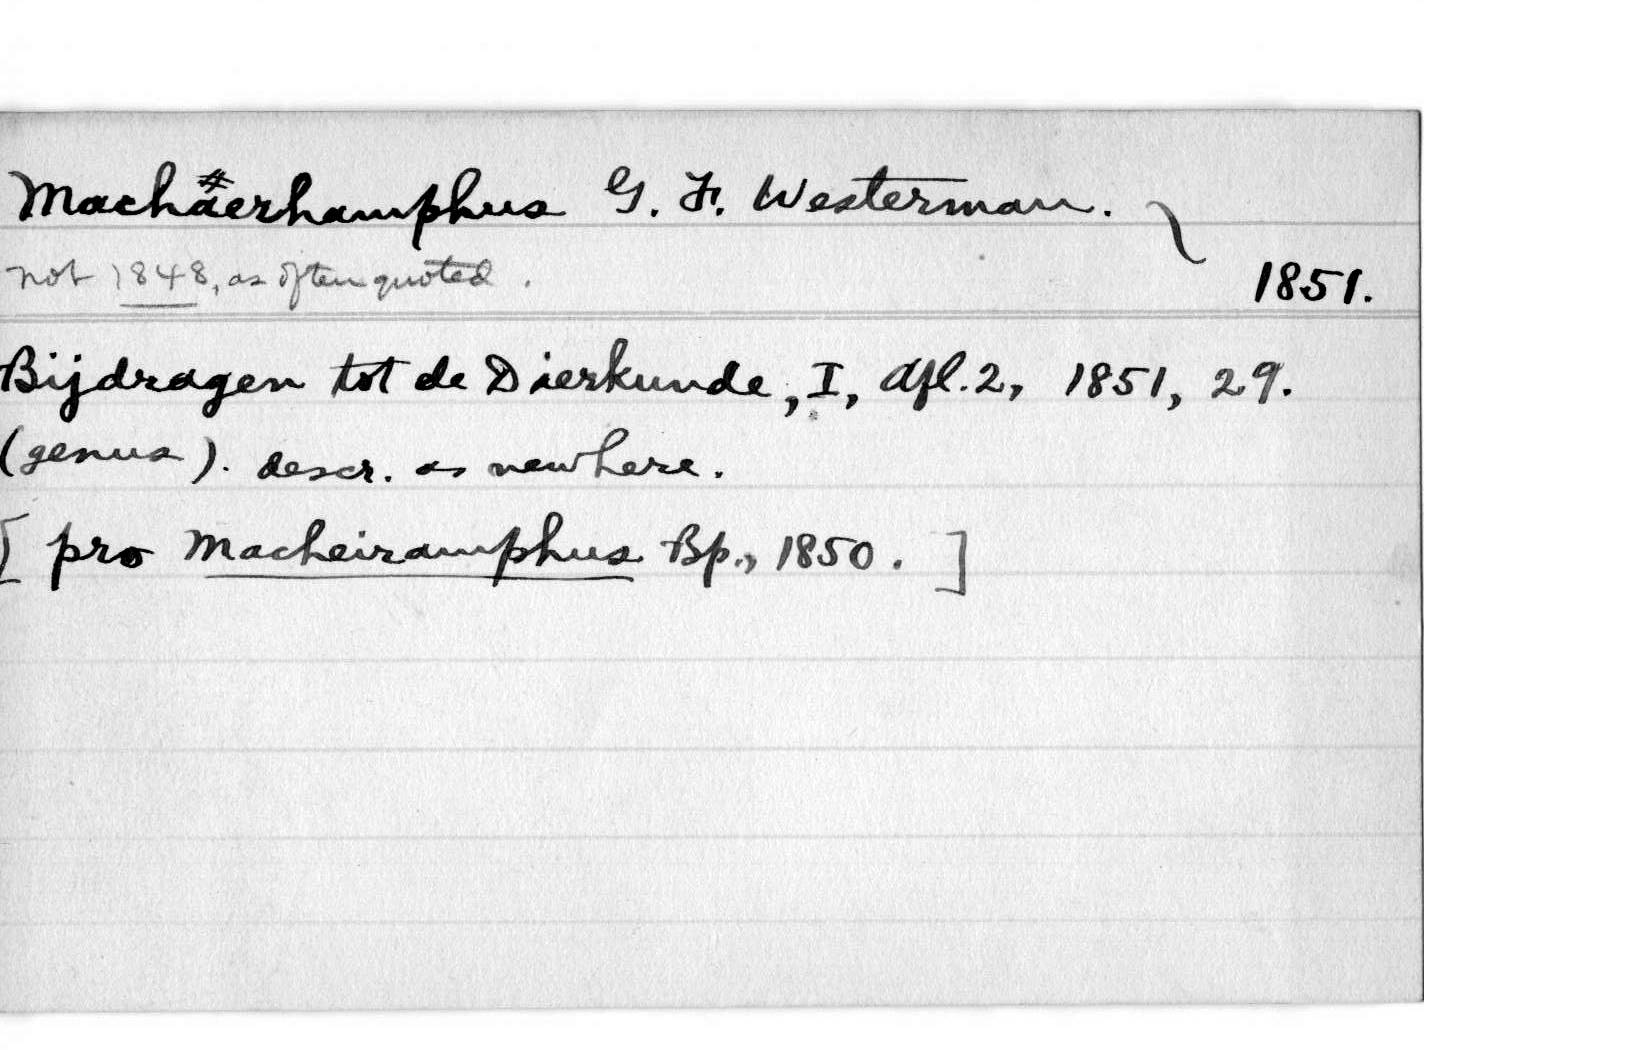 Machäerhamphus G. F. Westerman.
not 1848, as often quoted.
1851.
Bijdragen tot de Dierkunde, I, Afl. 2, 1851, 29.
(genus). descr. as new here.
[ pro Macheiramphus Bp., 1850. ]